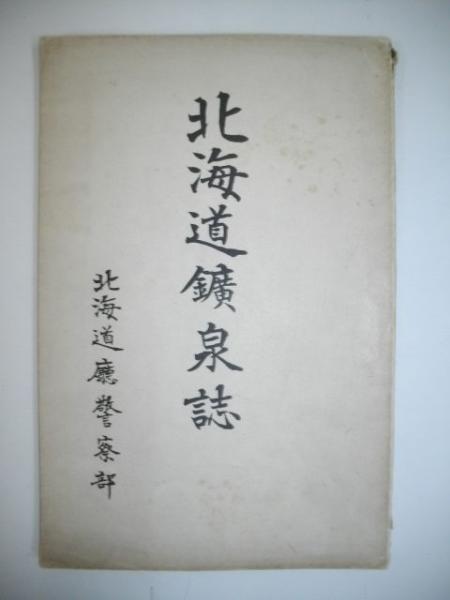 北海道鑛泉誌
北海道廳警察部